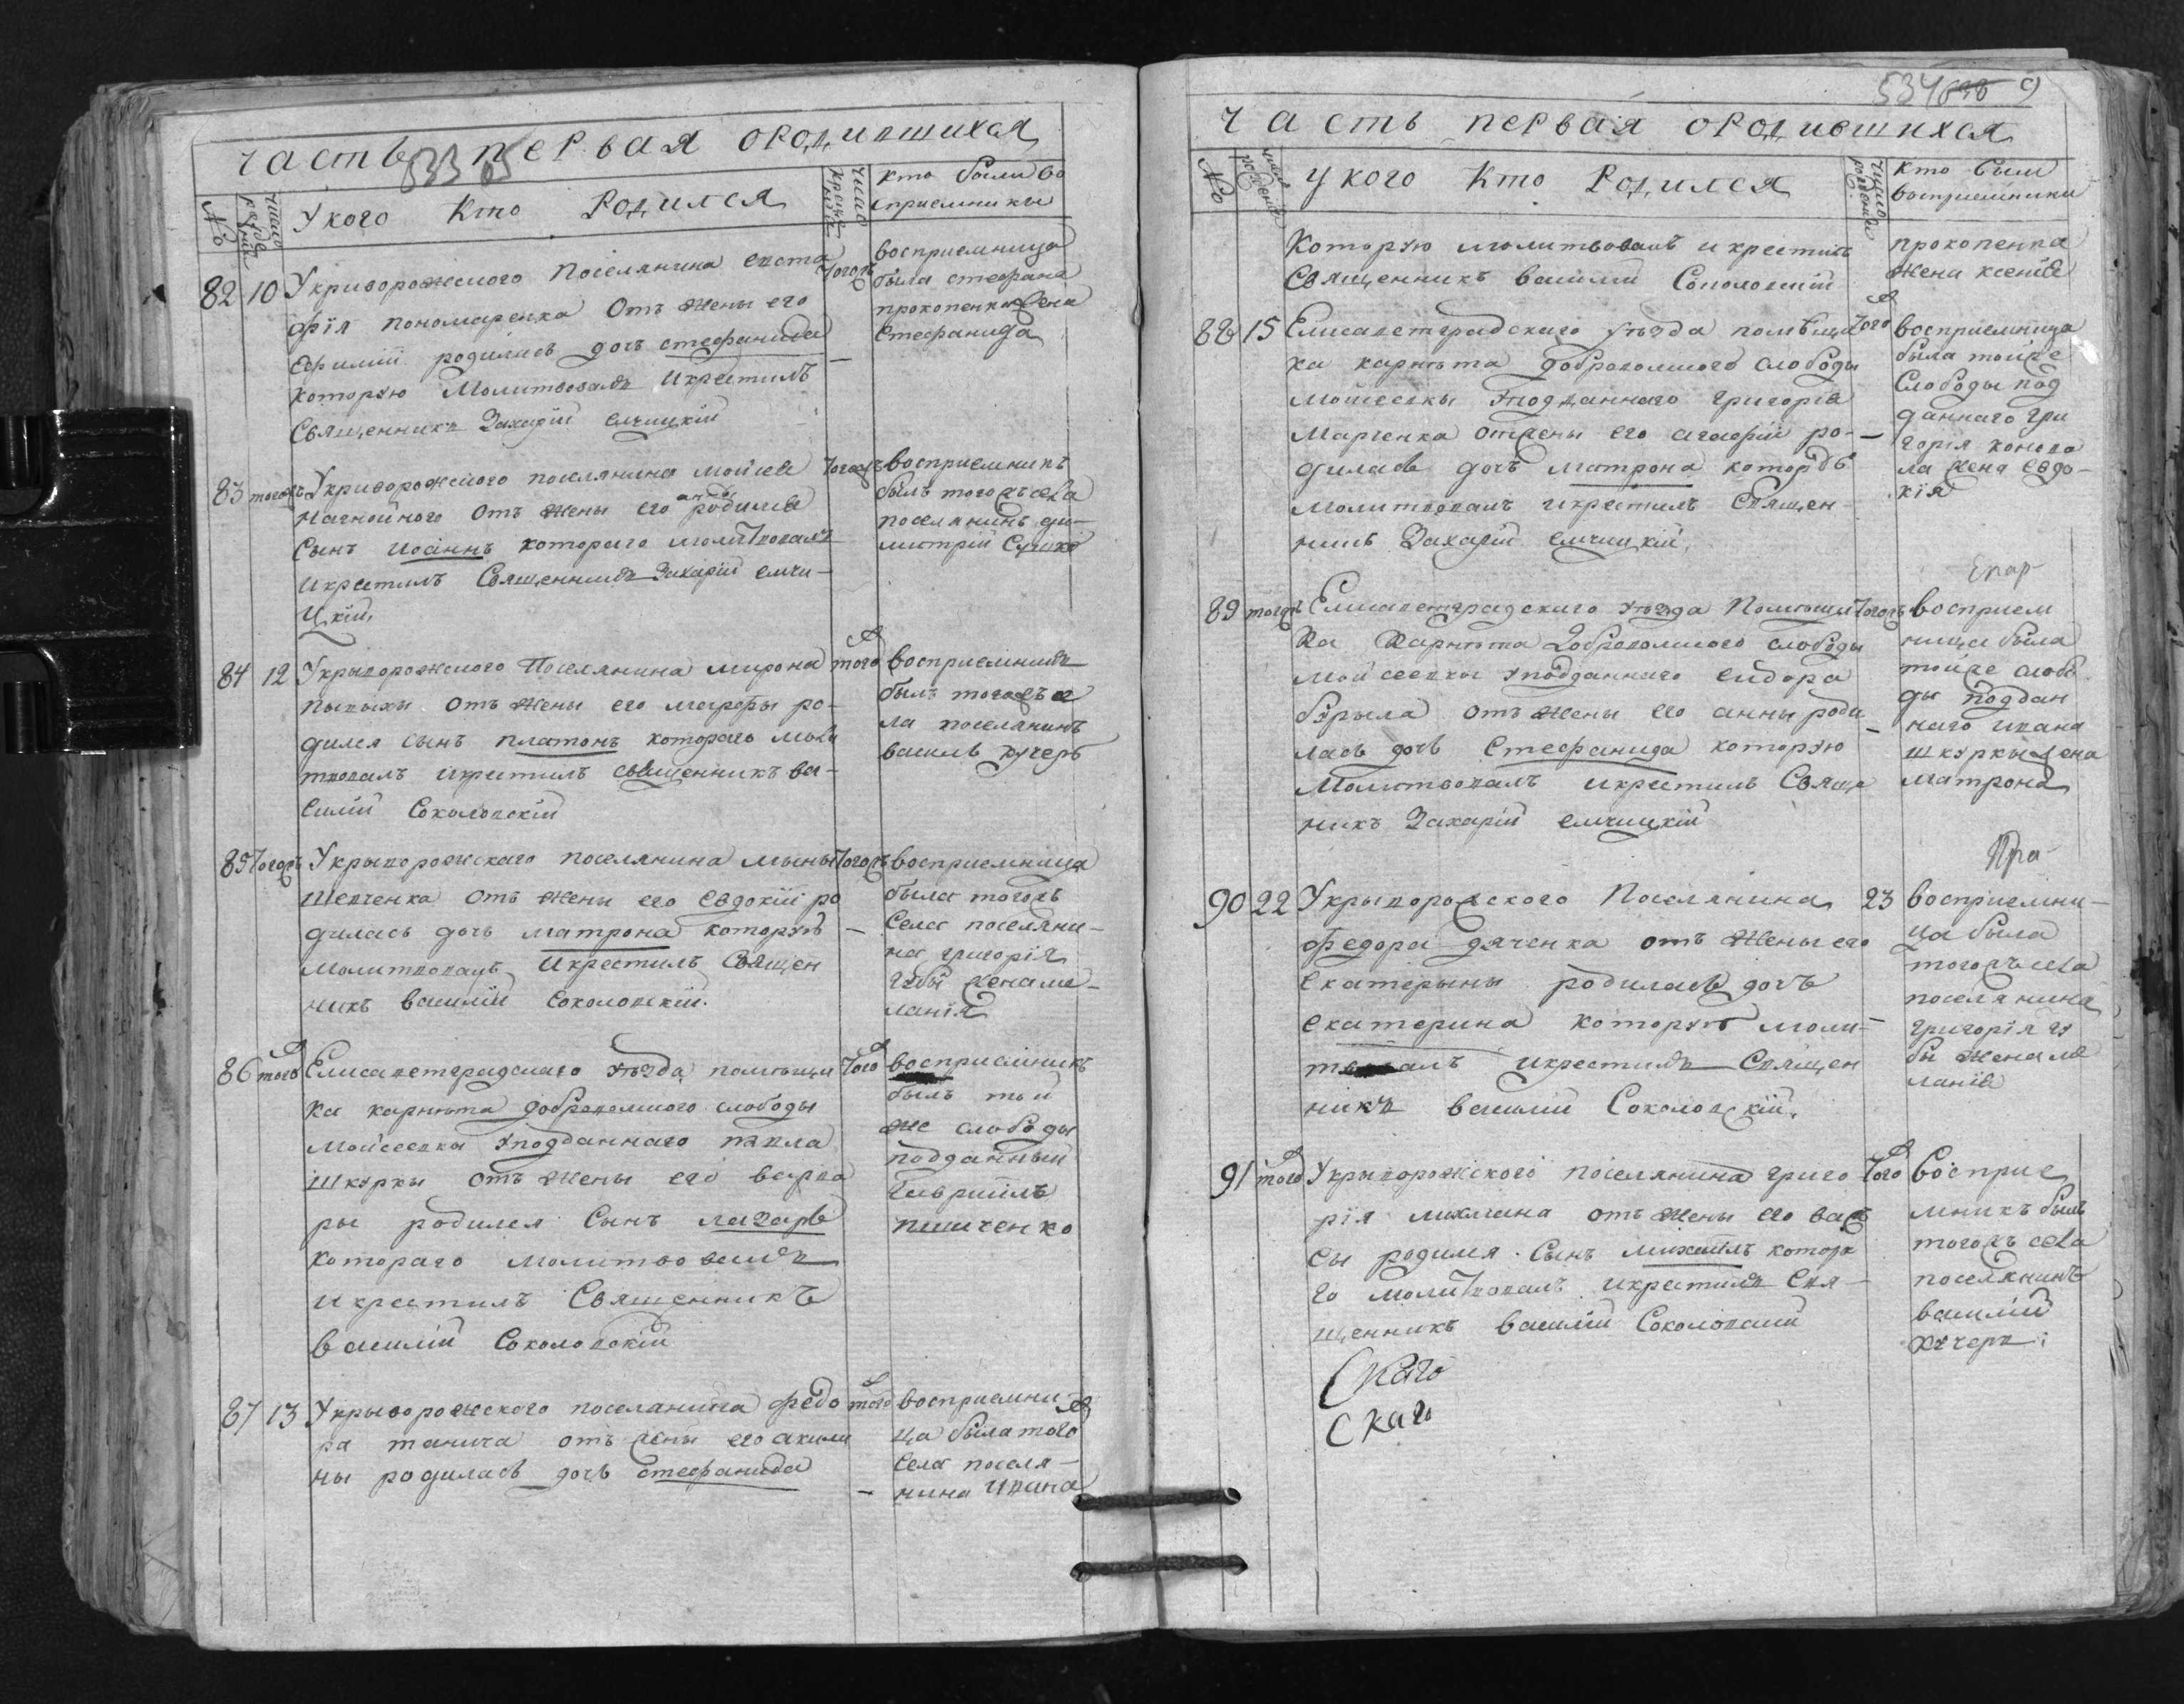 часть первая ородившихся
533
№
число рождения
У кого Кто Родился
число крещения
кто были во
сприемники
82
10
Укриворожского поселянина евста
фія пономаренка Отъ жены его
ефиміи родилась дочь стефанида
которую Молитвовалъ Икрестилъ
Священникъ Захарій елчицкій
тогожъ
восприемница
была стефана
прокопенка жена
стефанида
83
тогожъ
Укриворожского поселянина мойсея
нагнойного отъ жены его анны родился
Сынъ иоаннъ которого молитвовалъ
икрестилъ Священникъ Захарій елчи-
цкій
тогожъ
восприемникъ
былъ тогожъ села
поселянинъ ди-
митрій
84
12
Укрыворожского Поселянина мирона
отъ жены его марфы ро-
дился сынъ платонъ которого моли
твовалъ икрестилъ священникъ ва-
силій Соколовскій
того
восприемникъ
былъ тогожъ се
ла поселянинъ
василь кучеръ
85
Тогожъ
Укрыворожского поселянина мины
шевченка отъ жены его Евдокіи ро
дилась дочь матрона которую
молитвовалъ Икрестилъ Священ
никъ василій соколовскій.
Тогожъ
восприемница
была тогожъ
Села поселяни-
на григорія
губы жена ме-
ланія
86
того
Елисаветградского уѣзда помѣщи
ка карнета добровольского слободы
мойсеевки уподданнаго павла
шкурки отъ жены его варва
ры родился Сынъ лазарь
котораго молитвовалъ
икрестилъ Священникъ
василій Соколовскій
Того
восприемникъ
былъ той
же слободы
подданный
Гавріилъ
пшиченко
87
13
Укрыворожского поселянина федо
ра танича отъ жены его акили
ны родилась дочь стефанида
того
восприемни
ца была того
Села поселя-
нина Ивана
534
9
часть первая ородившихся
№
число рождения
у кого Кто Родился
число рождения
Кто были
восприемники
Которую молитвовалъ икрестилъ
Священникъ василій Соколовскій
прокопенка
жена ксенія
88
15
Елисаветградского уѣзда помѣщи
ка карнета добровольского слободы
мойсеевки уподданнаго григорія
марченка отжены его агафіи ро-
дилась дочь матрона которую
молитвовалъ икрестилъ Священ-
никъ Захарій елчицкій
Того
восприемница
была тойже
Слободы под
даннаго гри
горія коново
ла жена евдо-
кія
89
тогожъ
Елисаветградского уѣзда Помѣщи
ка Карнета Добровольского слободы
мойсеевки уподданнаго сидора
бурыла отъ жены его анны роди
лась дочь Стефанида которую
Молитвовалъ икрестилъ Свяще
никъ Захарій елчицкій
Тогожъ
восприем
ница была
тойже слобо
ды поддан
наго ивана
шкурки жена
матрона
90
22
Укрыворожского Поселянина
федора дяченка отъ жены его
екатерины родилась дочь
екатерина которую моли-
твовалъ икрестилъ Священ
никъ василій Соколовскій.
23
восприемни-
ца была
тогожъ села
поселянина
григорія гу
бы жена ме
ланія
91
того
Укрыворожского поселянина григо
рія отъ жены его вас
сы родился Сынъ михаилъ которо
го молитвовалъ икрестилъ Свя-
щенникъ василій Соколовскій
Того
восприе
мникъ былъ
тогожъ села
поселянинъ
василій
кучеръ
Скаго
Скаго